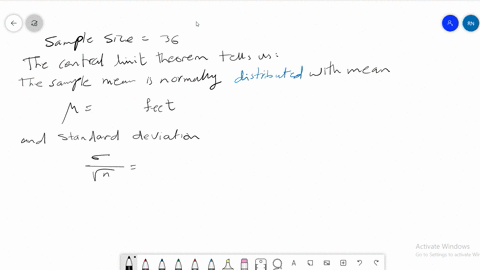 Sample Size = 36
The central limit theorem tells us:
The sample mean is normally distributed with mean
μ = feet
and standard deviation
σ/√n =
RN
Activate Windows
Go to Settings to activate Windows.